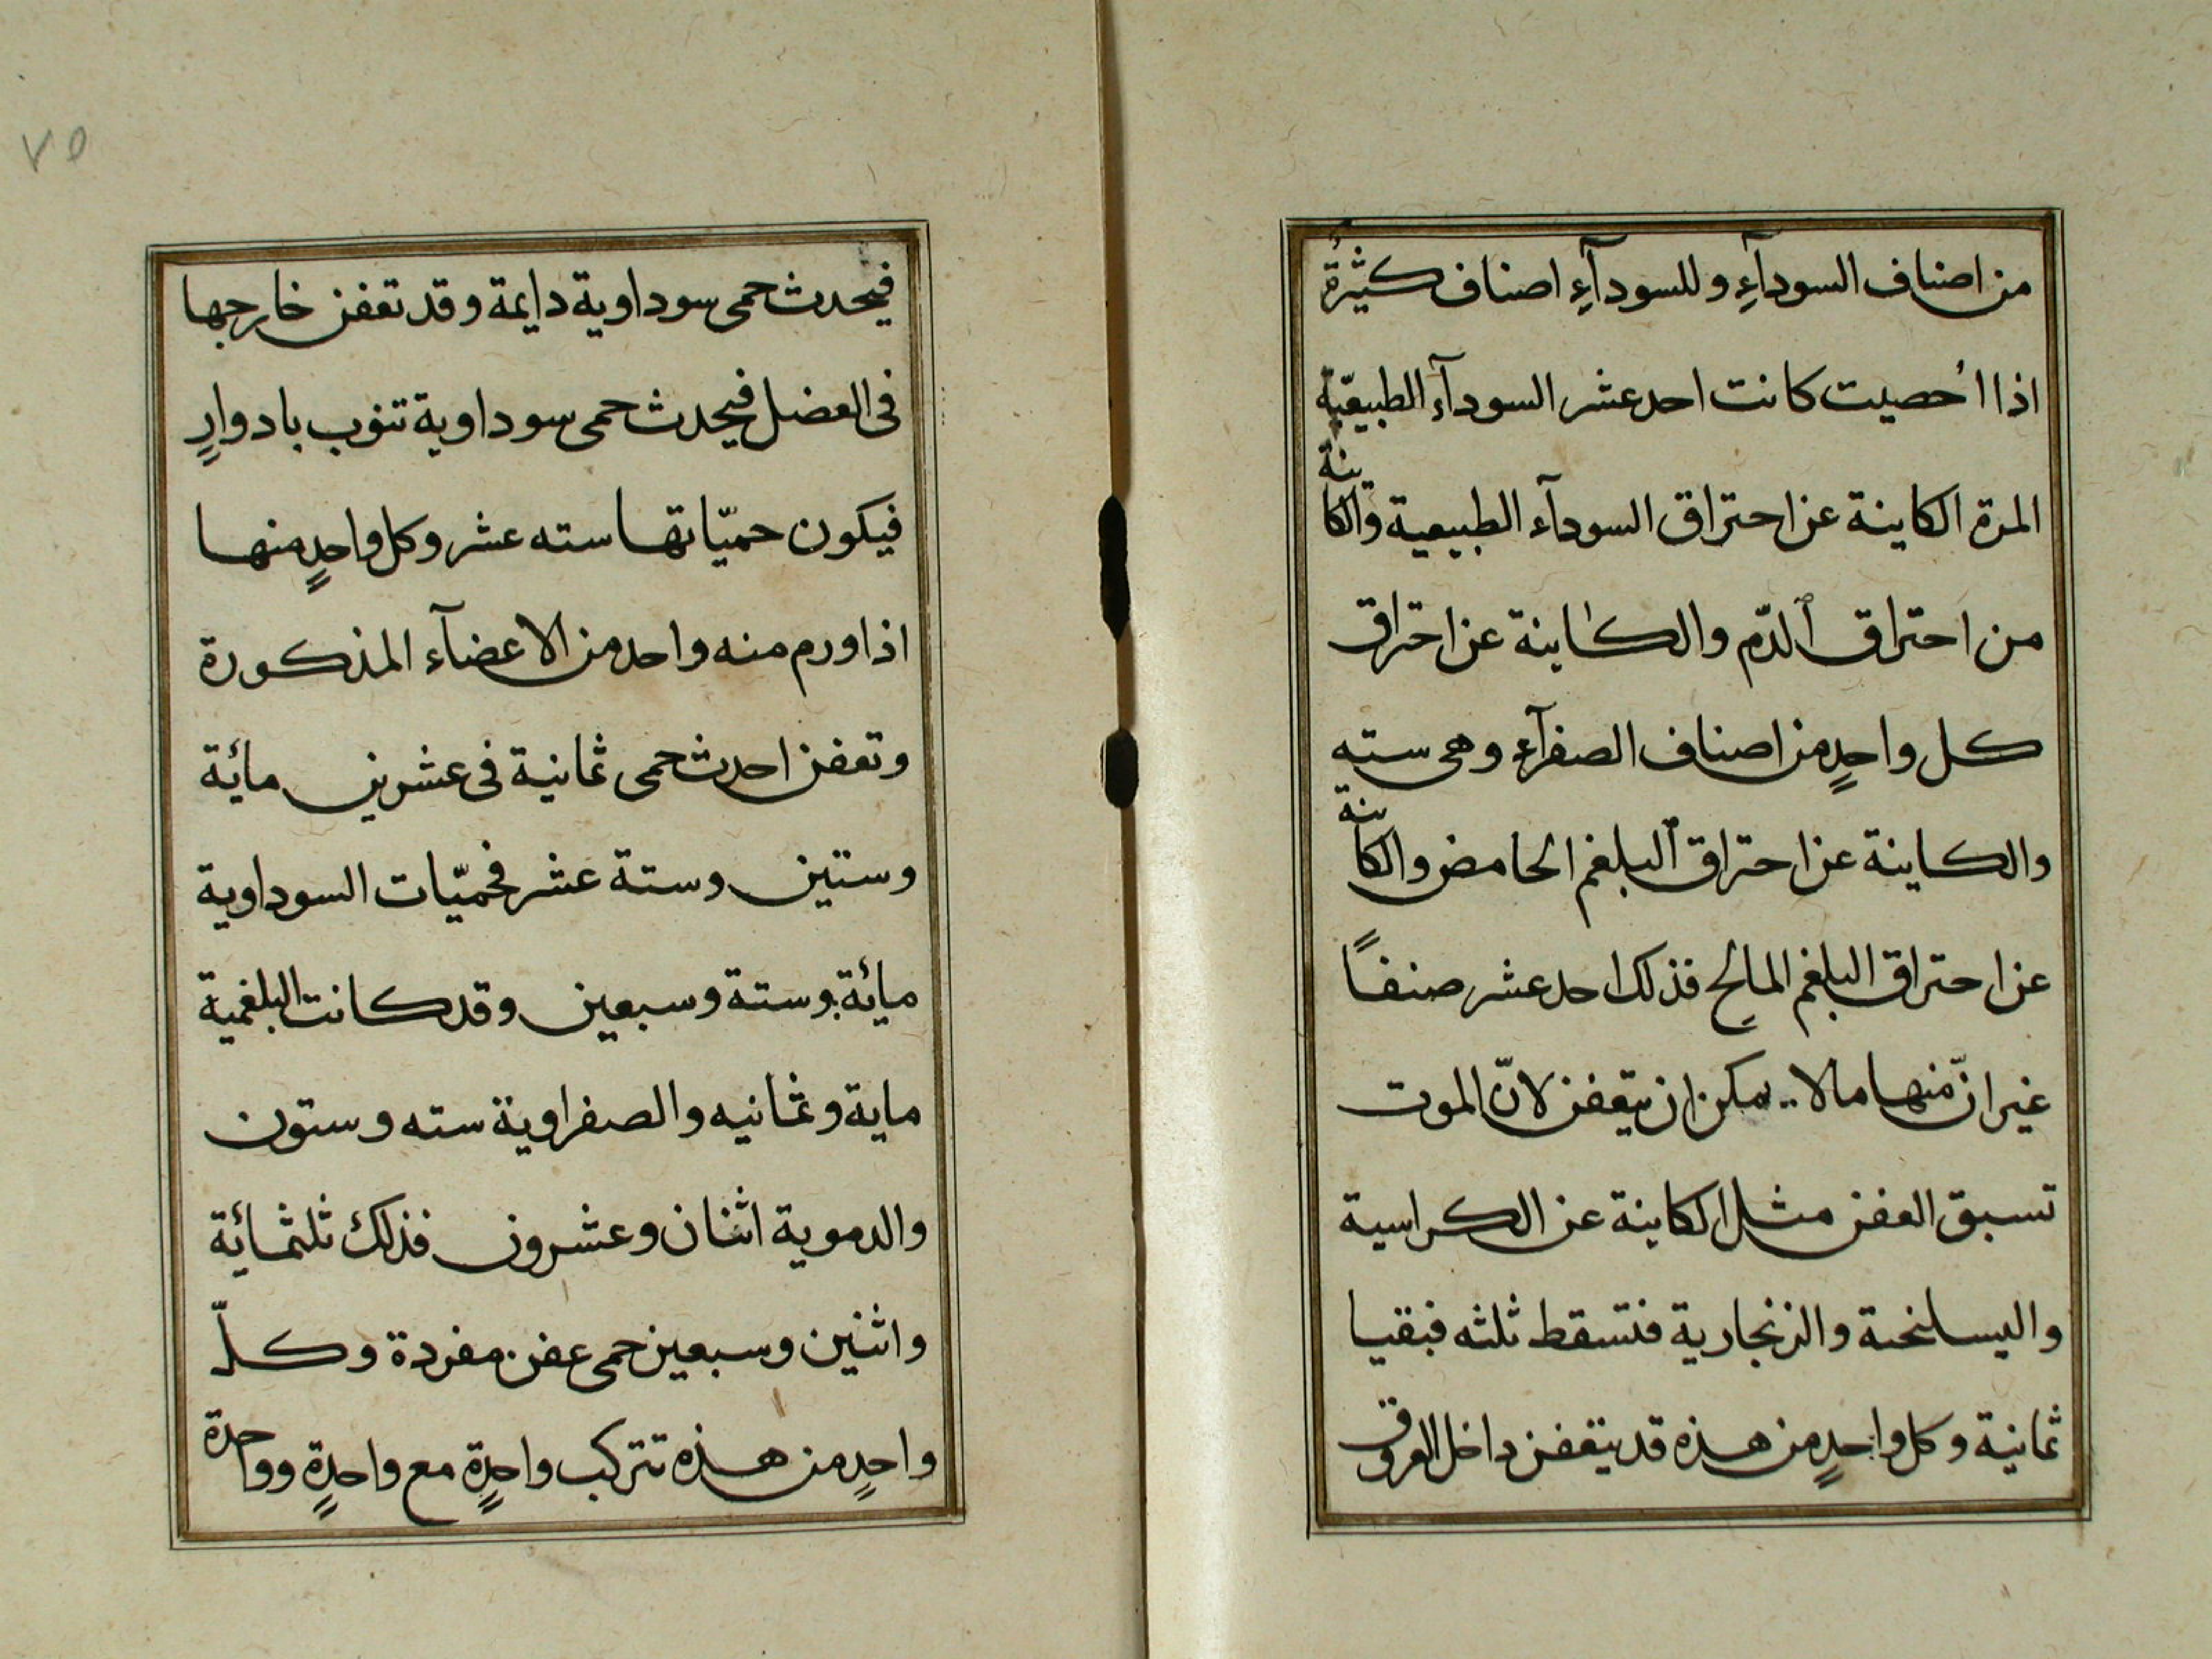 من اصناف السودآءِ وللسودآءِ اصناف كثيرة
اذا اُحصيت كانت احد عشر السودآء الطبيعيّة
المرة الكاينة عن احتراق السودآء الطبيعية والكاينة
من احتراق الدّم والكاينة عن احتراق
كل واحدٍ من اصناف الصفرآءِ وهى سته
والكاينة عن احتراق البلغم الحامض والكاينة
عن احتراق البلغم المالح فذلك احد عشر صنفاً
غير انّ منها مالا يمكن ان يتعفن لانّ الموت
تسبق العفن مثل الكاينة عن الكراسية
واليسلنحىة والزنجارية فتسقط ثلثه فبقيا
ثمانية وكل واحدٍ من هذه قد يتعفن داخل العروق
٧٥
فيحدث حمى سوداوية دايمة وقد تعفن خارجها
فى العضل فيحدث حمى سوداوية تنوب بادوارٍ
فيكون حميّاتها سته عشر وكل واحدٍ منها
اذا ورم منه واحد من الاعضآء المذكورة
وتعفن احدث حمى ثمانية فى عشرين مائة
وستين وستة عشر فحميّات السوداوية
مائة وستة وسبعين وقد كانت البلغمية
ماية وثمانيه والصفراوية سته وستون
والدموية اثنان وعشرون فذلك ثلثمائة
واثنين وسبعين حمى عفن مفردة وكلّ
واحدٍ من هذه تتركب واحدٍة مع واحدٍة وواحدة